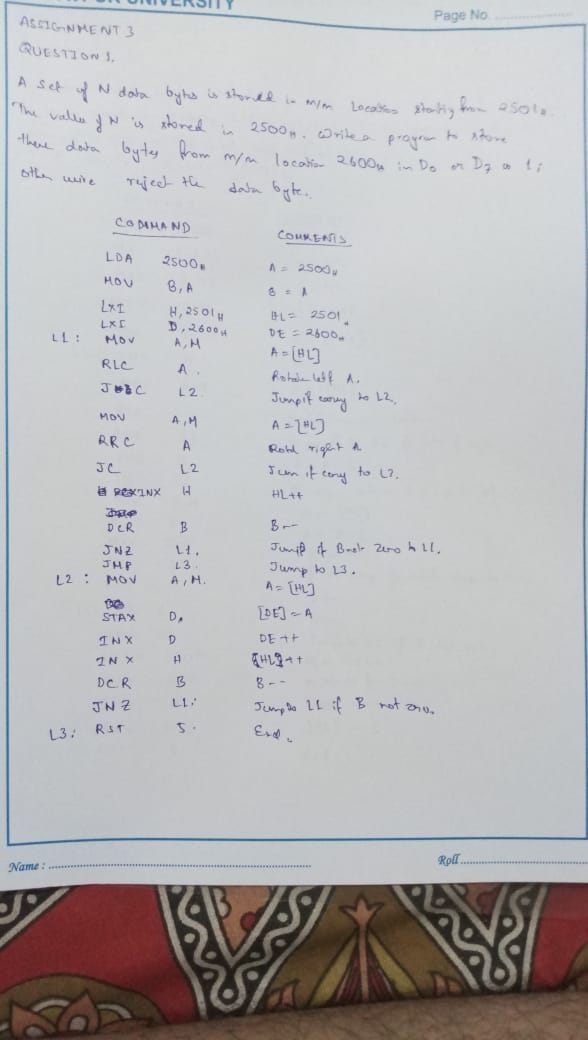 UNIVERSITY
Page No.
ASSIGNMENT 3
QUESTION 1.
A set of N data bytes is stored in m/m Location starting from 2501H.
The value of N is stored in 2500H. Write a program to store
these data bytes from m/m location 2600H in D0 or D7 is 1;
other wise reject the data byte.
COMMAND COMMENTS
LDA 2500H A = 2500H
MOV B, A B = A
LXI H, 2501H HL = 2501H
LXI D, 2600H DE = 2600H
L1 : MOV A, M A = [HL]
RLC A. Rotate left A.
JC L2. Jump if carry to L2.
MOV A, M A = [HL]
RRC A Rotd right A
JC L2 Jum if carry to L2.
INX H HL++
DCR B B--
JNZ L1. Jump if B not zero to L1.
JMP L3. Jump to L3.
L2 : MOV A, M. A = [HL]
STAX D. [DE] = A
INX D DE++
INX H [HL]++
DCR B B--
JNZ L1. Jump to L1 if B not zero.
L3 : RST 5. End.
Name : Roll